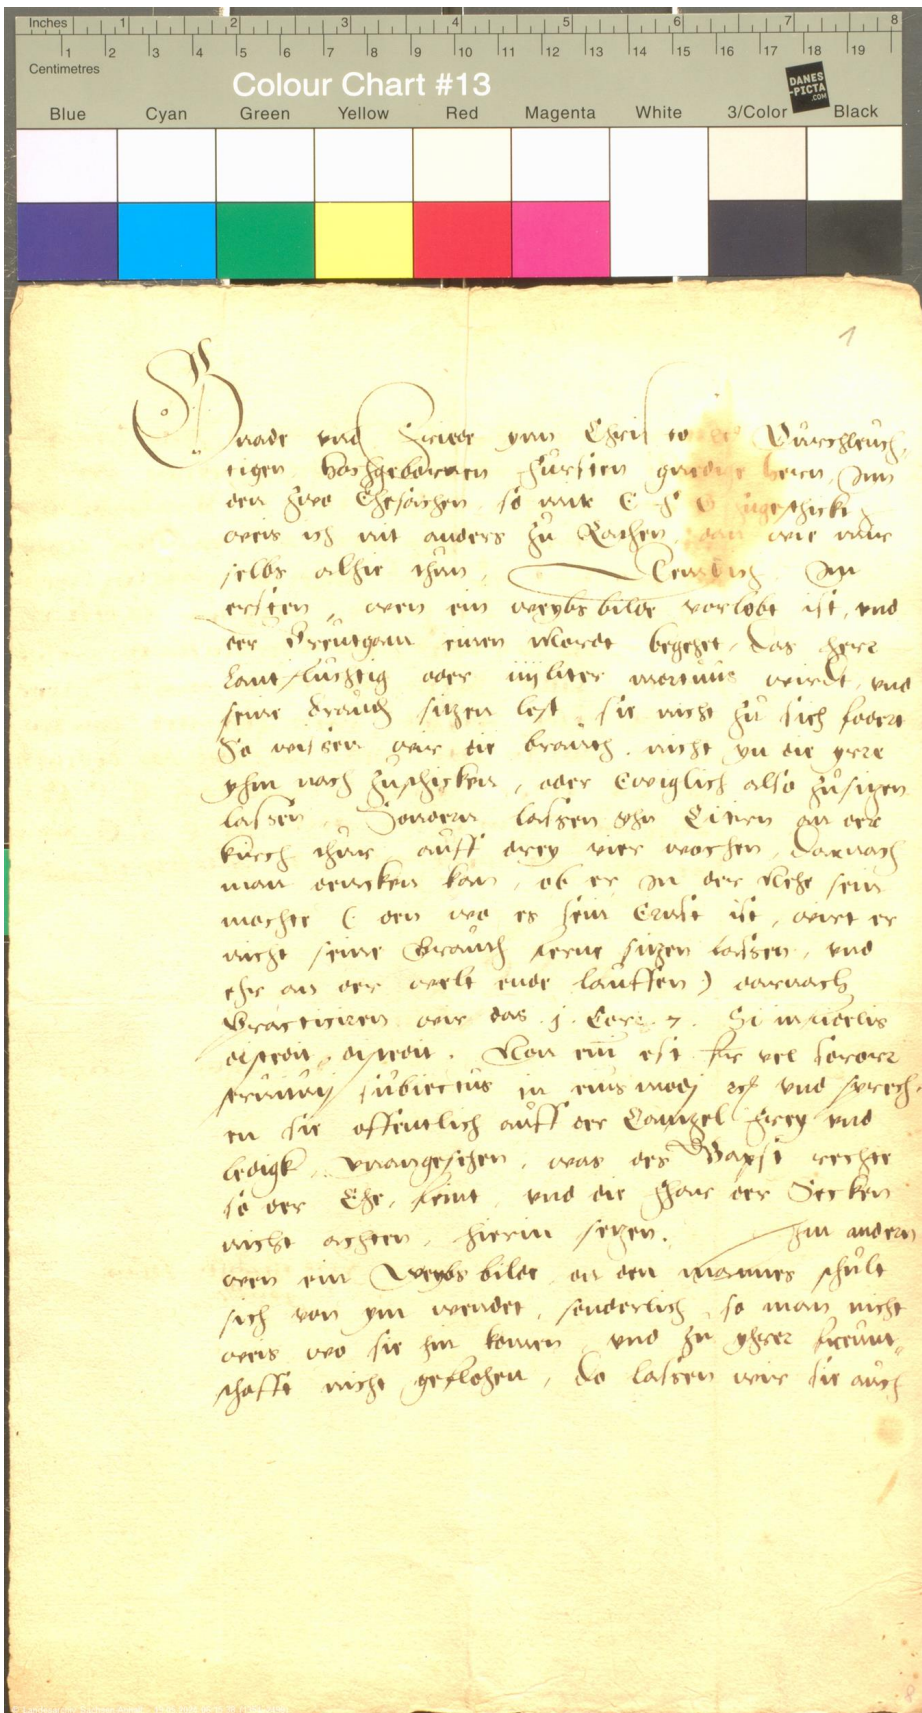 Inches 1 2 3 4 5 6 7 8
1 2 3 4 5 6 7 8 9 10 11 12 13 14 15 16 17 18 19
Centimetres
Colour Chart #13
DANES
-PICTA
.COM
Blue Cyan Green Yellow Red Magenta White 3/Color Black
1
Gnade vnd Friede ynn Christo Durchleuch,
tigen hochgebornen Fursten gnedige hern, Inn
den zwo Ehesachen so mir E F G zugeschickt
weis ich nit anders zu Rathen, dan wie wir
selbs alhie thun, Im
ersten, wen ein weybsbilde vorlobt ist, vnd
der Breutgam einen Mordt begehet, das herr
Lantfluchtig oder ciuiliter mortuus wirdt, vnd
seine brauth sitzen lest, sie nicht zu sich fodert
So wissen wir die brauth nicht yn die yrre
yhm nach zuschicken, oder Ewiglich also zusitzen
lassen, Sondern lassen yhn Citirn an der
kirch thur auff drey vier wochen, Darnach
man dencken kan, ob er In der Nehe sein
mochte (den wo es sein Ernst ist, wirt er
nicht seine Brauth ferne sitzen lassen, vnd
ehr an der welt ende lauffen) darnach
Practiciren wir das .j. Cor. 7. Si infidelis
discedit, discedit. Non enim est fr vel soror
seruituti subiectus in eiusmodj rc vnd sprech,
en sie offentlich auff der Cantzel Frey vnd
ledigk, vnangesehen, was des Bapst rechte
so der Ehe, feint, vnd die der Secken
nicht achten, hierin setzen. Zm andern
wen ein Weybsbilde on den mannes schult
sich von ym wendet, sonderlich, so man nicht
weis wo sie hin komen vnd zu yhrer freunt,,
schafft nicht geflohen, Do lassen wir sie auch